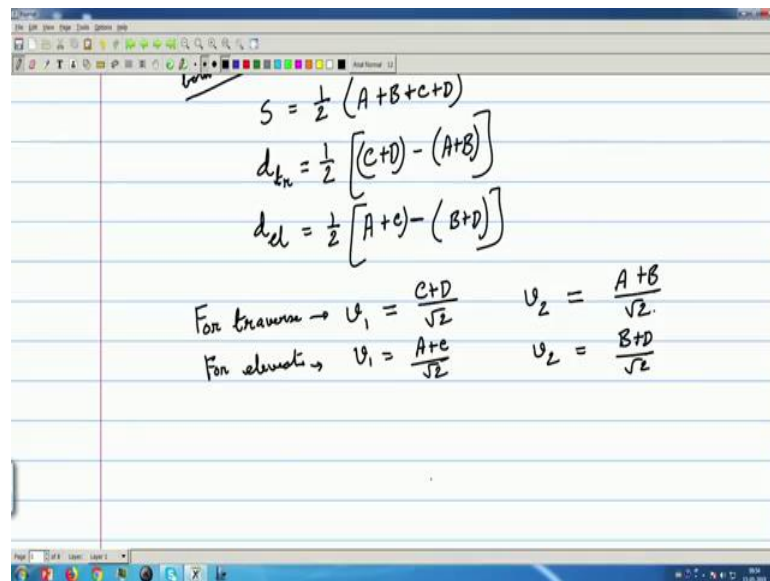 File Edit View Page Tools Options Help
S = 1/2 (A+B+C+D)
d_tr = 1/2 [(C+D) - (A+B)]
d_el = 1/2 [A+C) - (B+D)]
For traverse → v₁ = C+D/√2 v₂ = A+B/√2.
For elevati → v₁ = A+C/√2 v₂ = B+D/√2
Page 1 of 8 Layer: Layer 1